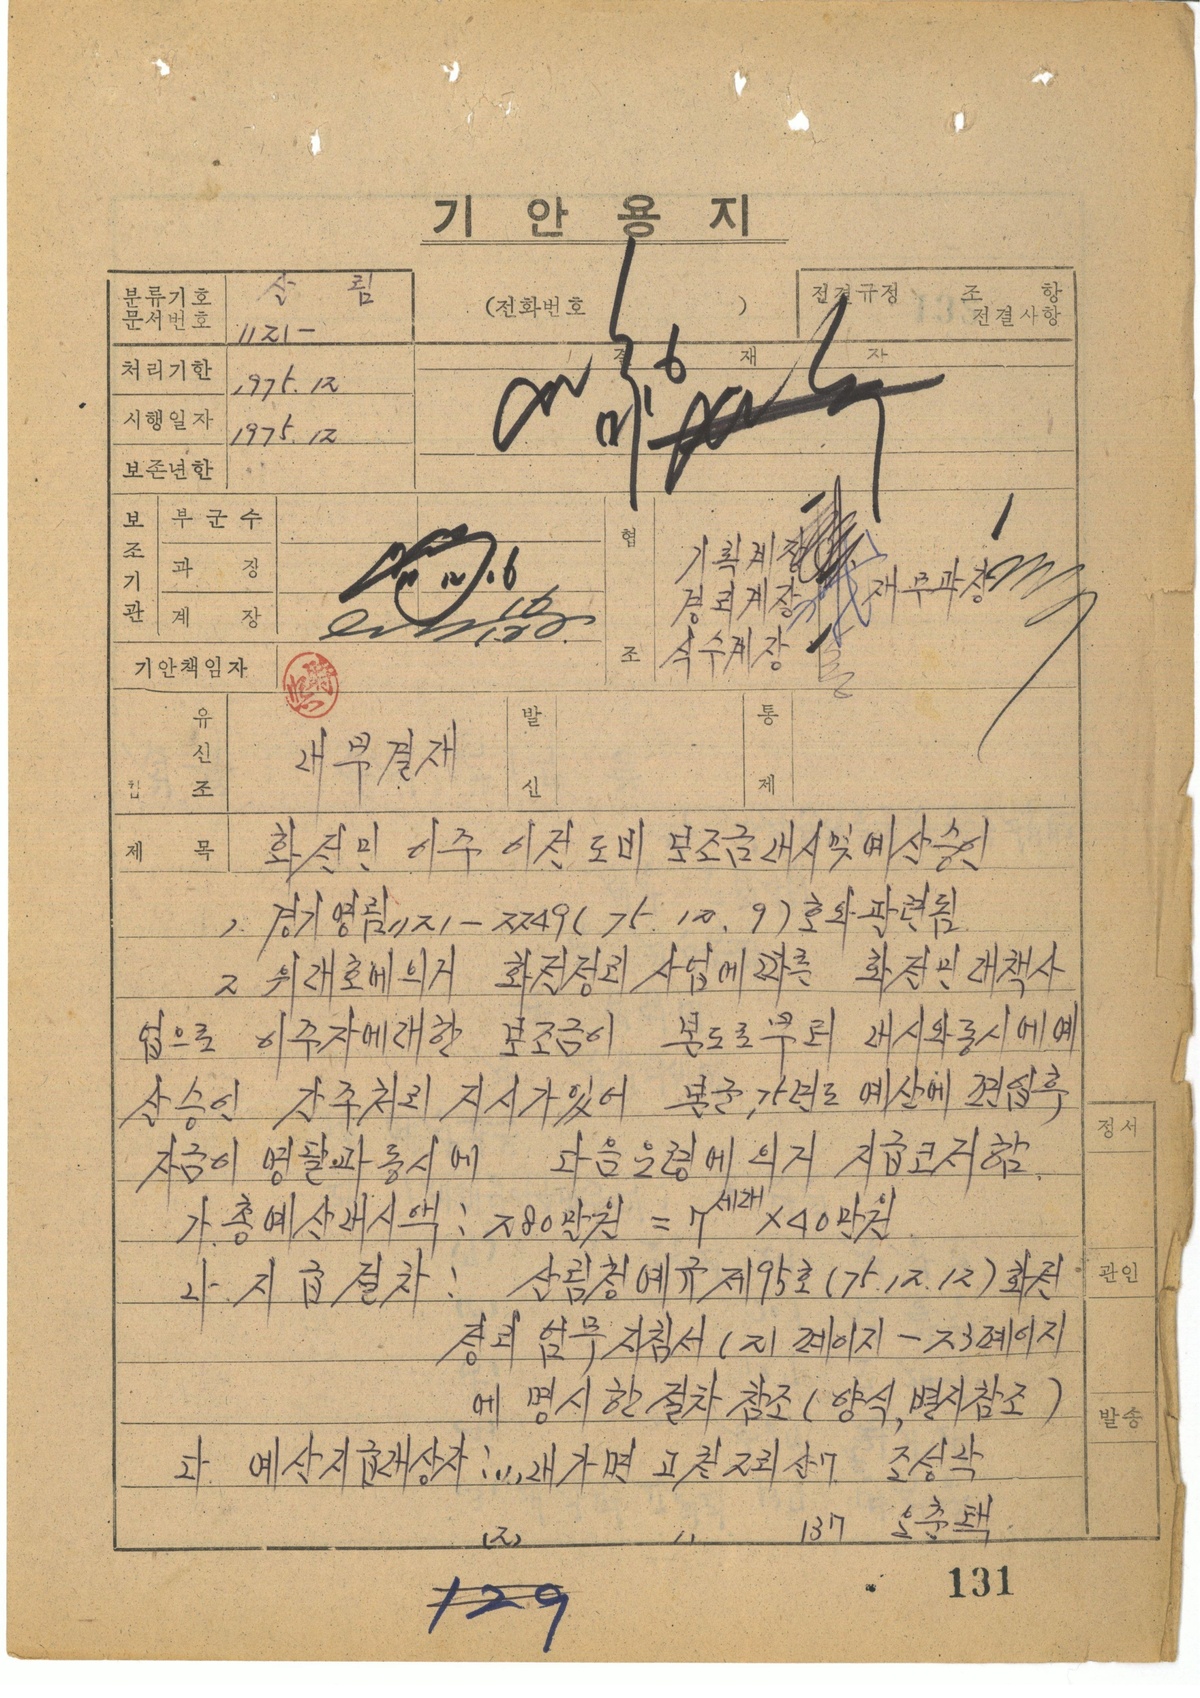 기안용지
분류기호 문서번호 산림 1121-
(전화번호 )
전결규정 조 항 전결사항
처리기한 1975. 12
시행일자 1975. 12
보존년한
결재자
보조기관
부군수
과장 12.16
계장
협조
기획계장
경리계장 재무과장
식수계장
기안책임자
유신조 내부결재
발신
통제
제목 화전민 이주 이전 도비 보조금 내시 및 예산승인
1. 경기영림 1121-2249(75. 12. 9)호와 관련됨
2 위 대호에 의거 화전정리 사업에 따른 화전민 대책사
업으로 이주자에 대한 보조금이 본도로부터 내시와 동시에 예
산승인 간주처리 지시가 있어 본군 75년도 예산에 편입후
자금이 영달과 동시에 다음 요령에 의거 지급코저 함.
가. 총예산내시액 : 280만원 = 7세대×40만원
나. 지급절차 : 산림청예규 제95호(75.12.12) 화전
정리 업무지침서 (21페이지-23페이지
에 명시한 절차 참조(양식, 별지참조)
다. 예산지급대상자 : (1), 내가면 고천2리 산7 조성락
(2) 〃 137 오춘택
정서
관인
발송
129
131